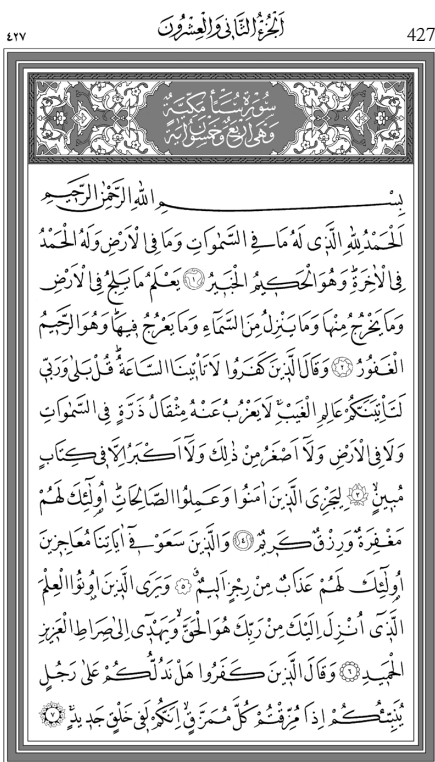 ٤٢٧ اَلْجُزْءُ الثَّانِي وَالْعِشْرُونَ 427
سُورَةُ سَبَأٍ مَكِّيَّةٌ
وَهِيَ اَرْبَعٌ وَخَمْسُونَ اٰيَةً
بِسْمِ اللّٰهِ الرَّحْمٰنِ الرَّحِيمِ
اَلْحَمْدُ لِلّٰهِ الَّذِي لَهُ مَا فِي السَّمٰوَاتِ وَمَا فِي الْاَرْضِ وَلَهُ الْحَمْدُ
فِي الْاٰخِرَةِۜ وَهُوَ الْحَكِيمُ الْخَبِيرُ ﴿١﴾ يَعْلَمُ مَا يَلِجُ فِي الْاَرْضِ
وَمَا يَخْرُجُ مِنْهَا وَمَا يَنْزِلُ مِنَ السَّمَٓاءِ وَمَا يَعْرُجُ فِيهَاۜ وَهُوَ الرَّحِيمُ
الْغَفُورُ ﴿٢﴾ وَقَالَ الَّذِينَ كَفَرُوا لَا تَأْتِينَا السَّاعَةُۜ قُلْ بَلٰى وَرَبِّي
لَتَأْتِيَنَّكُمْ عَالِمِ الْغَيْبِۚ لَا يَعْزُبُ عَنْهُ مِثْقَالُ ذَرَّةٍ فِي السَّمٰوَاتِ
وَلَا فِي الْاَرْضِ وَلَٓا اَصْغَرُ مِنْ ذٰلِكَ وَلَٓا اَكْبَرُ اِلَّا فِي كِتَابٍ
مُبِينٍۙ ﴿٣﴾ لِيَجْزِيَ الَّذِينَ اٰمَنُوا وَعَمِلُوا الصَّالِحَاتِۜ اُو۬لٰٓئِكَ لَهُمْ
مَغْفِرَةٌ وَرِزْقٌ كَرِيمٌ ﴿٤﴾ وَالَّذِينَ سَعَوْ فِٓي اٰيَاتِنَا مُعَاجِزِينَ
اُو۬لٰٓئِكَ لَهُمْ عَذَابٌ مِنْ رِجْزٍ اَلِيمٌ ﴿٥﴾ وَيَرَى الَّذِينَ اُو۫تُوا الْعِلْمَ
الَّذِٓي اُنْزِلَ اِلَيْكَ مِنْ رَبِّكَ هُوَ الْحَقَّۙ وَيَهْدِٓي اِلٰى صِرَاطِ الْعَزِيزِ
الْحَمِيدِ ﴿٦﴾ وَقَالَ الَّذِينَ كَفَرُوا هَلْ نَدُلُّكُمْ عَلٰى رَجُلٍ
يُنَبِّئُكُمْ اِذَا مُزِّقْتُمْ كُلَّ مُمَزَّقٍۙ اِنَّكُمْ لَفِي خَلْقٍ جَدِيدٍۚ ﴿٧﴾